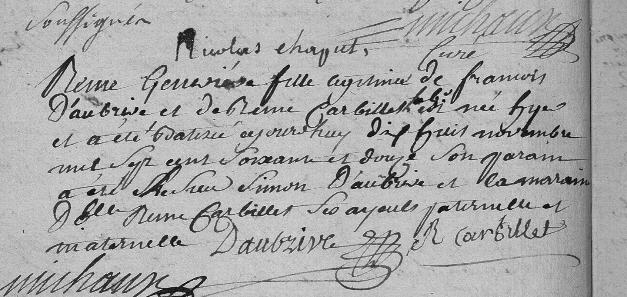 soussignés
michaux
Nicolas chaput. Curé
Reine Geneviève fille legitime de francois
D'aubrive et de Reine Carbillet est née hyer
et a été batisée ajourdhuy dix huit novembre
mil sept cent soixante et douze son parain
a été Simon D'aubrive et la marain
Dlle Reine Carbillet ses ayeuls paternelle et
maternelle Daubrive R Carbillet
michaux